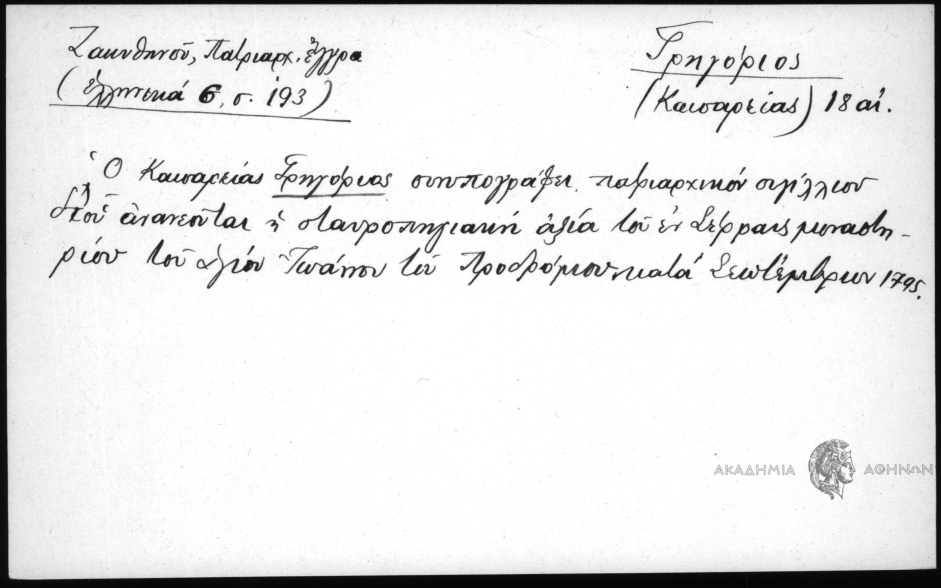 Ζακυθηνοῦ, Πατριαρχ. ἔγγρα
(Ἑλληνικά 6, σ. 193)
Γρηγόριος
(Καισαρείας) 18 αἰ.
Ὁ Καισαρείας Γρηγόριος συνυπογράφει πατριαρχικόν σιγίλλιον
δι' οὗ ἀνανεοῦται ἡ σταυροπηγιακή ἀξία τοῦ ἐν Σέρραις μοναστη-
ρίου τοῦ Ἁγίου Ἰωάννου τοῦ Προδρόμου κατά Σεπτέμβριον 1795.
ΑΚΑΔΗΜΙΑ ΑΘΗΝΩΝ